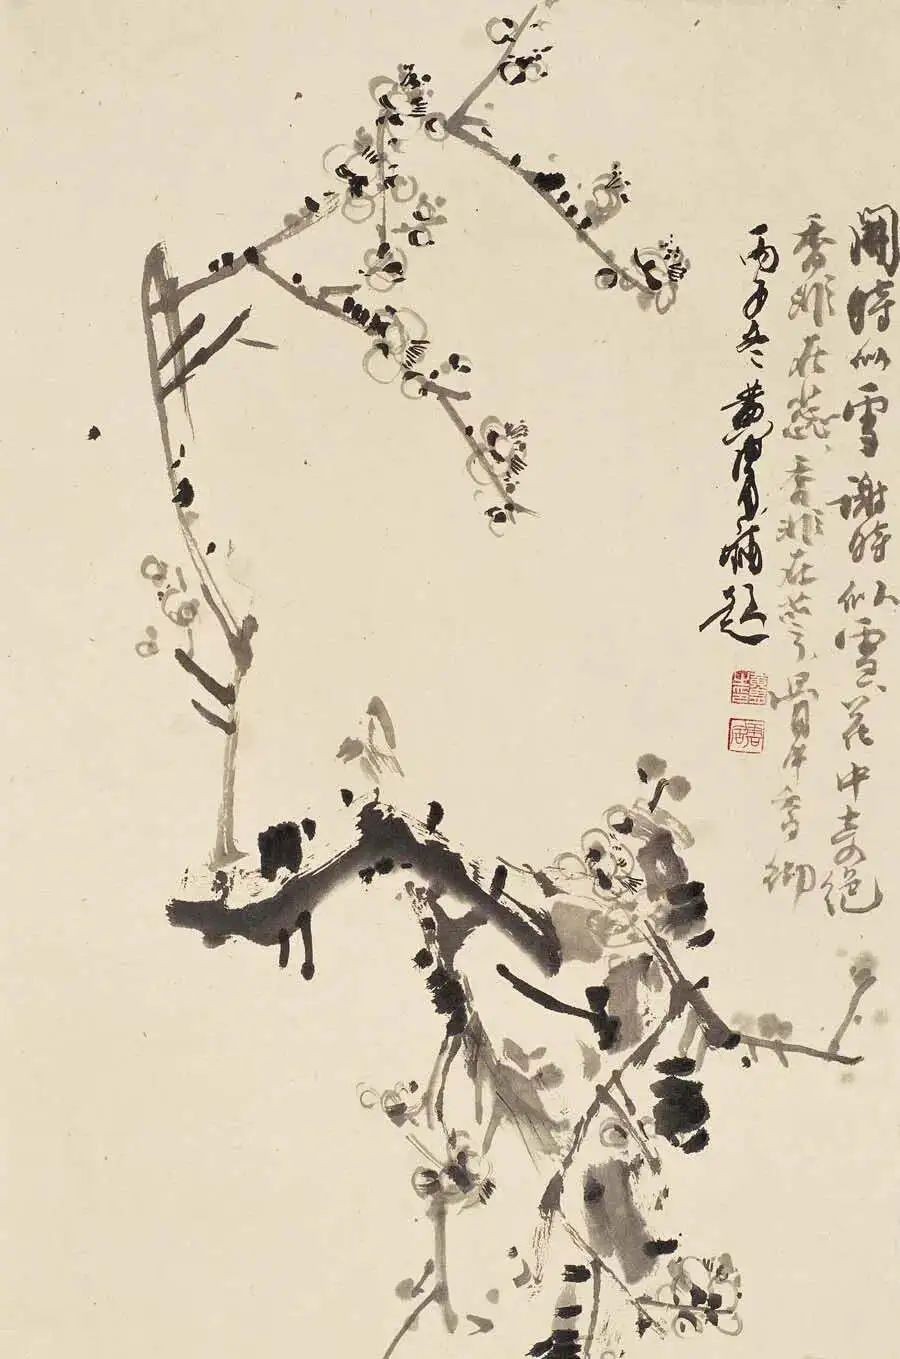 開時似雪謝時似雪花中奇絕
香非在蕊香非在萼骨中香彻
丙子冬黃胄補題